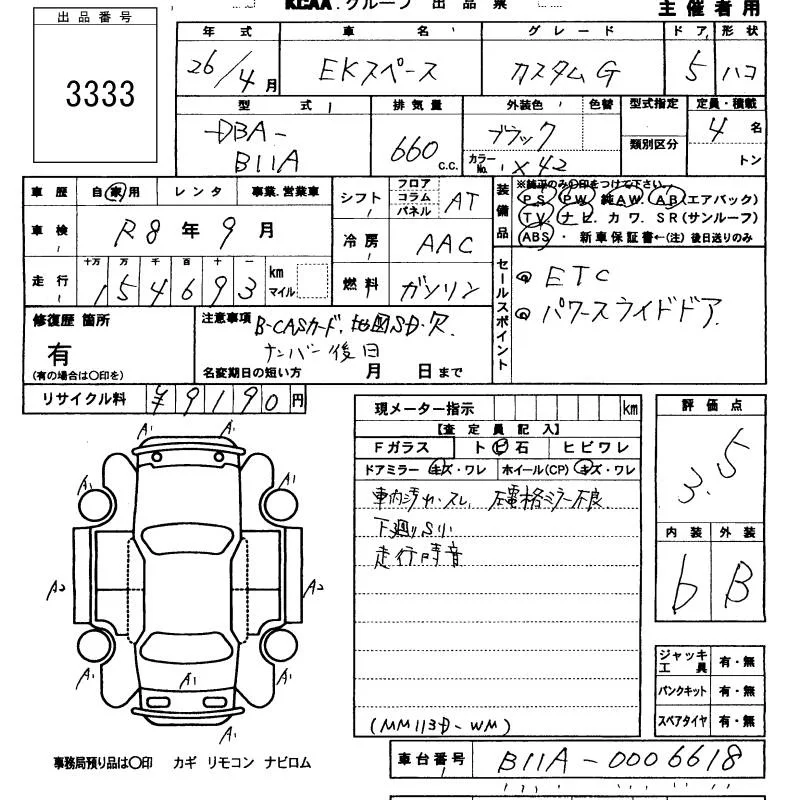 KCAA.グループ 出品票 主催者用
出品番号
3333
年式 車名 グレード ドア 形状
26/4月 EKスペース カスタムG 5 ハコ
型式 排気量 外装色 色替 型式指定 定員・積載
DBA-
B11A 660c.c. ブラック 類別区分 4名
カラーNo. X42 トン
車歴 自家用 レンタ 事業.営業車
車検 R8年9月
走行 十万 万 千 百 十 一
154693 km マイル
シフト フロア コラム パネル AT
冷房 AAC
燃料 ガソリン
装備品 ※純正のみ○印をつけて下さい。
PS PW 純AW. AB(エアバック)
TV. ナビ. カワ. SR(サンルーフ)
ABS ・ 新車保証書←(注)後日送りのみ
セールスポイント
ETC
パワースライドドア
修復歴 箇所
有
(有の場合は○印を)
注意事項 B-CASカード,地図SD.欠
ナンバー後日
名変期日の短い方 月 日まで
リサイクル料 ¥9190円
現メーター指示 km
【査定員記入】
Fガラス ト ビ 石 ヒビワレ
ドアミラー キズ・ワレ ホイール(CP) キズ・ワレ
車内汚れ・スレ, 左電格ミラー不良
下廻りサビ
走行時音
(MM113D-WM)
評価点
3.5
内装 外装
b B
ジャッキ工具 有・無
パンクキット 有・無
スペアタイヤ 有・無
A1 A1
A1 A1
A2 A2
A1 A1 A1
A1
事務局預り品は○印 カギ リモコン ナビロム
車台番号 B11A-0006618